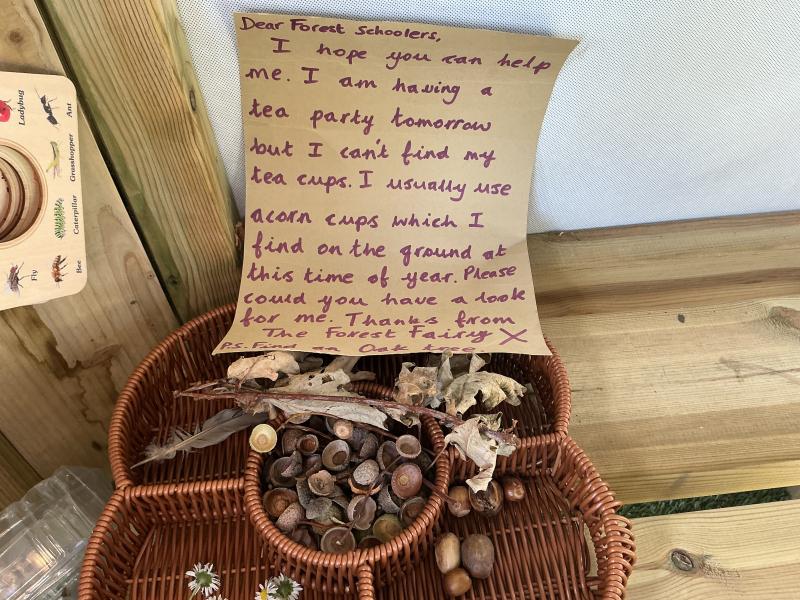 Dear Forest Schoolers,
I hope you can help
me. I am having a
tea party tomorrow
but I can't find my
tea cups. I usually use
acorn cups which I
find on the ground at
this time of year. Please
could you have a look
for me. Thanks from
The Forest Fairy X
P.S. Find an Oak tree
Ladybug
Ant
Grasshopper
Caterpillar
Fly
Bee